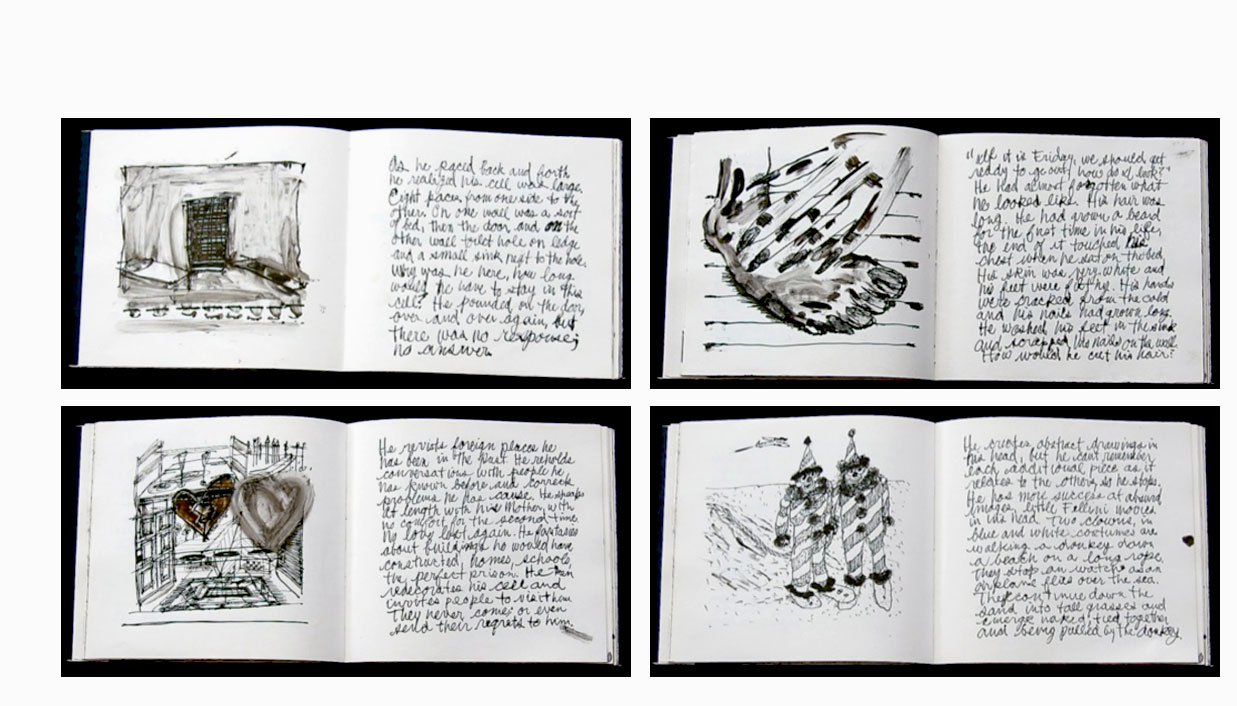 As he paced back and forth
he realized his cell was large.
Eight paces from one side to the
other. On one wall was a sort
of bed, then the door, and on the
other wall toilet hole on ledge
and a small sink next to the hole.
Why was he here, how long
would he have to stay in this
cell? He pounded on the door,
over and over again, but
there was no response,
no answer.
"If it is Friday, we should get
ready to go out, how do I look?"
He had almost forgotten what
he looked like. His hair was
long. He had grown a beard
for the first time in his life,
the end of it touched his
chest when he sat on the bed.
His skin was very white and
his feet were filthy. His hands
were cracked from the cold
and his nails had grown long.
He washed his feet in the sink
and scrapped his nails on the wall.
How would he cut his hair?
He revisits foreign places he
has been in the past. He reholds
conversations with people he
has known before and corrects
problems he has cause. He speaks
at length with his Mother, with
no comfort for the second time.
My love lost again. He fantasies
about buildings he would have
constructed, homes, schools,
the perfect prison. He then
redecorates his cell and
invites people to visit him
They never come, or even
send their regrets to him.
He creates abstract drawings in
his head, but he can't remember
each additional piece as it
relates to the other, so he stops.
He has more success at absurd
images, little Fellini movies
in his head. Two clowns, in
blue and white costumes are
walking a donkey down
a beach on a long rope
They stop an watch as an
airplane flies over the sea.
They continue down the
sand into tall grasses and
emerge naked, tied together
and being pulled by the donkey.